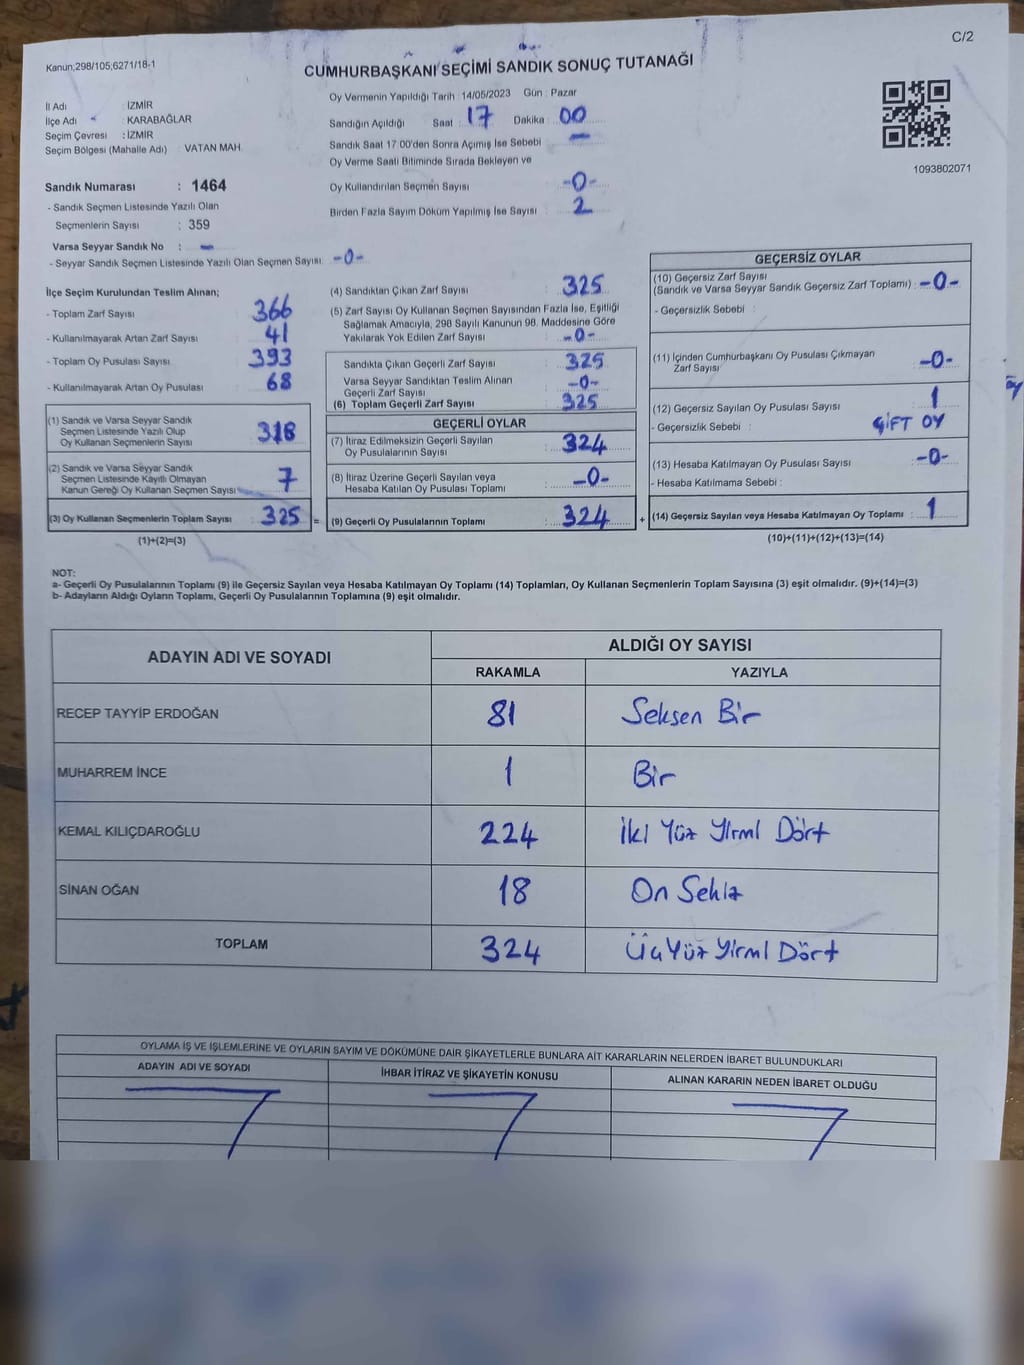 C/2
Kanun;298/105;6271/18-1
CUMHURBAŞKANI SEÇİMİ SANDIK SONUÇ TUTANAĞI
Oy Vermenin Yapıldığı Tarih : 14/05/2023 Gün : Pazar
İl Adı : İZMİR
İlçe Adı : KARABAĞLAR
Seçim Çevresi : İZMİR
Seçim Bölgesi (Mahalle Adı) VATAN MAH.
Sandık Numarası : 1464
- Sandık Seçmen Listesinde Yazılı Olan
Seçmenlerin Sayısı : 359
Varsa Seyyar Sandık No : -
- Seyyar Sandık Seçmen Listesinde Yazılı Olan Seçmen Sayısı: -0-
Sandığın Açıldığı Saat : 17 Dakika : 00
Sandık Saat 17:00'den Sonra Açımış İse Sebebi : -
Oy Verme Saati Bitiminde Sırada Bekleyen ve
Oy Kullandırılan Seçmen Sayısı : -0-
Birden Fazla Sayım Döküm Yapılmış İse Sayısı : 2
1093802071
İlçe Seçim Kurulundan Teslim Alınan;
- Toplam Zarf Sayısı : 366
- Kullanılmayarak Artan Zarf Sayısı : 41
- Toplam Oy Pusulası Sayısı : 393
- Kullanılmayarak Artan Oy Pusulası : 68
(1) Sandık ve Varsa Seyyar Sandık
Seçmen Listesinde Yazılı Olup
Oy Kullanan Seçmenlerin Sayısı : 318
(2) Sandık ve Varsa Seyyar Sandık
Seçmen Listesinde Kayıtlı Olmayan
Kanun Gereği Oy Kullanan Seçmen Sayısı : 7
(3) Oy Kullanan Seçmenlerin Toplam Sayısı : 325 =
(1)+(2)=(3)
(4) Sandıktan Çıkan Zarf Sayısı : 325
(5) Zarf Sayısı Oy Kullanan Seçmen Sayısından Fazla İse, Eşitliği
Sağlamak Amacıyla, 298 Sayılı Kanunun 98. Maddesine Göre
Yakılarak Yok Edilen Zarf Sayısı : -0-
Sandıkta Çıkan Geçerli Zarf Sayısı : 325
Varsa Seyyar Sandıktan Teslim Alınan
Geçerli Zarf Sayısı : -0-
(6) Toplam Geçerli Zarf Sayısı : 325
GEÇERLİ OYLAR
(7) İtiraz Edilmeksizin Geçerli Sayılan
Oy Pusulalarının Sayısı : 324
(8) İtiraz Üzerine Geçerli Sayılan veya
Hesaba Katılan Oy Pusulası Toplamı : -0-
(9) Geçerli Oy Pusulalarının Toplamı : 324 +
GEÇERSİZ OYLAR
(10) Geçersiz Zarf Sayısı
(Sandık ve Varsa Seyyar Sandık Geçersiz Zarf Toplamı) : -0-
- Geçersizlik Sebebi :
(11) İçinden Cumhurbaşkanı Oy Pusulası Çıkmayan
Zarf Sayısı : -0-
(12) Geçersiz Sayılan Oy Pusulası Sayısı : 1
- Geçersizlik Sebebi : ÇİFT OY
(13) Hesaba Katılmayan Oy Pusulası Sayısı : -0-
- Hesaba Katılmama Sebebi :
(14) Geçersiz Sayılan veya Hesaba Katılmayan Oy Toplamı : 1
(10)+(11)+(12)+(13)=(14)
NOT:
a- Geçerli Oy Pusulalarının Toplamı (9) ile Geçersiz Sayılan veya Hesaba Katılmayan Oy Toplamı (14) Toplamları, Oy Kullanan Seçmenlerin Toplam Sayısına (3) eşit olmalıdır. (9)+(14)=(3)
b- Adayların Aldığı Oyların Toplamı, Geçerli Oy Pusulalarının Toplamına (9) eşit olmalıdır.
ADAYIN ADI VE SOYADI ALDIĞI OY SAYISI
RAKAMLA YAZIYLA
RECEP TAYYİP ERDOĞAN 81 Seksen Bir
MUHARREM İNCE 1 Bir
KEMAL KILIÇDAROĞLU 224 İki Yüz Yirmi Dört
SİNAN OĞAN 18 On Sekiz
TOPLAM 324 Üç Yüz Yirmi Dört
OYLAMA İŞ VE İŞLEMLERİNE VE OYLARIN SAYIM VE DÖKÜMÜNE DAİR ŞİKAYETLERLE BUNLARA AİT KARARLARIN NELERDEN İBARET BULUNDUKLARI
ADAYIN ADI VE SOYADI İHBAR İTİRAZ VE ŞİKAYETİN KONUSU ALINAN KARARIN NEDEN İBARET OLDUĞU